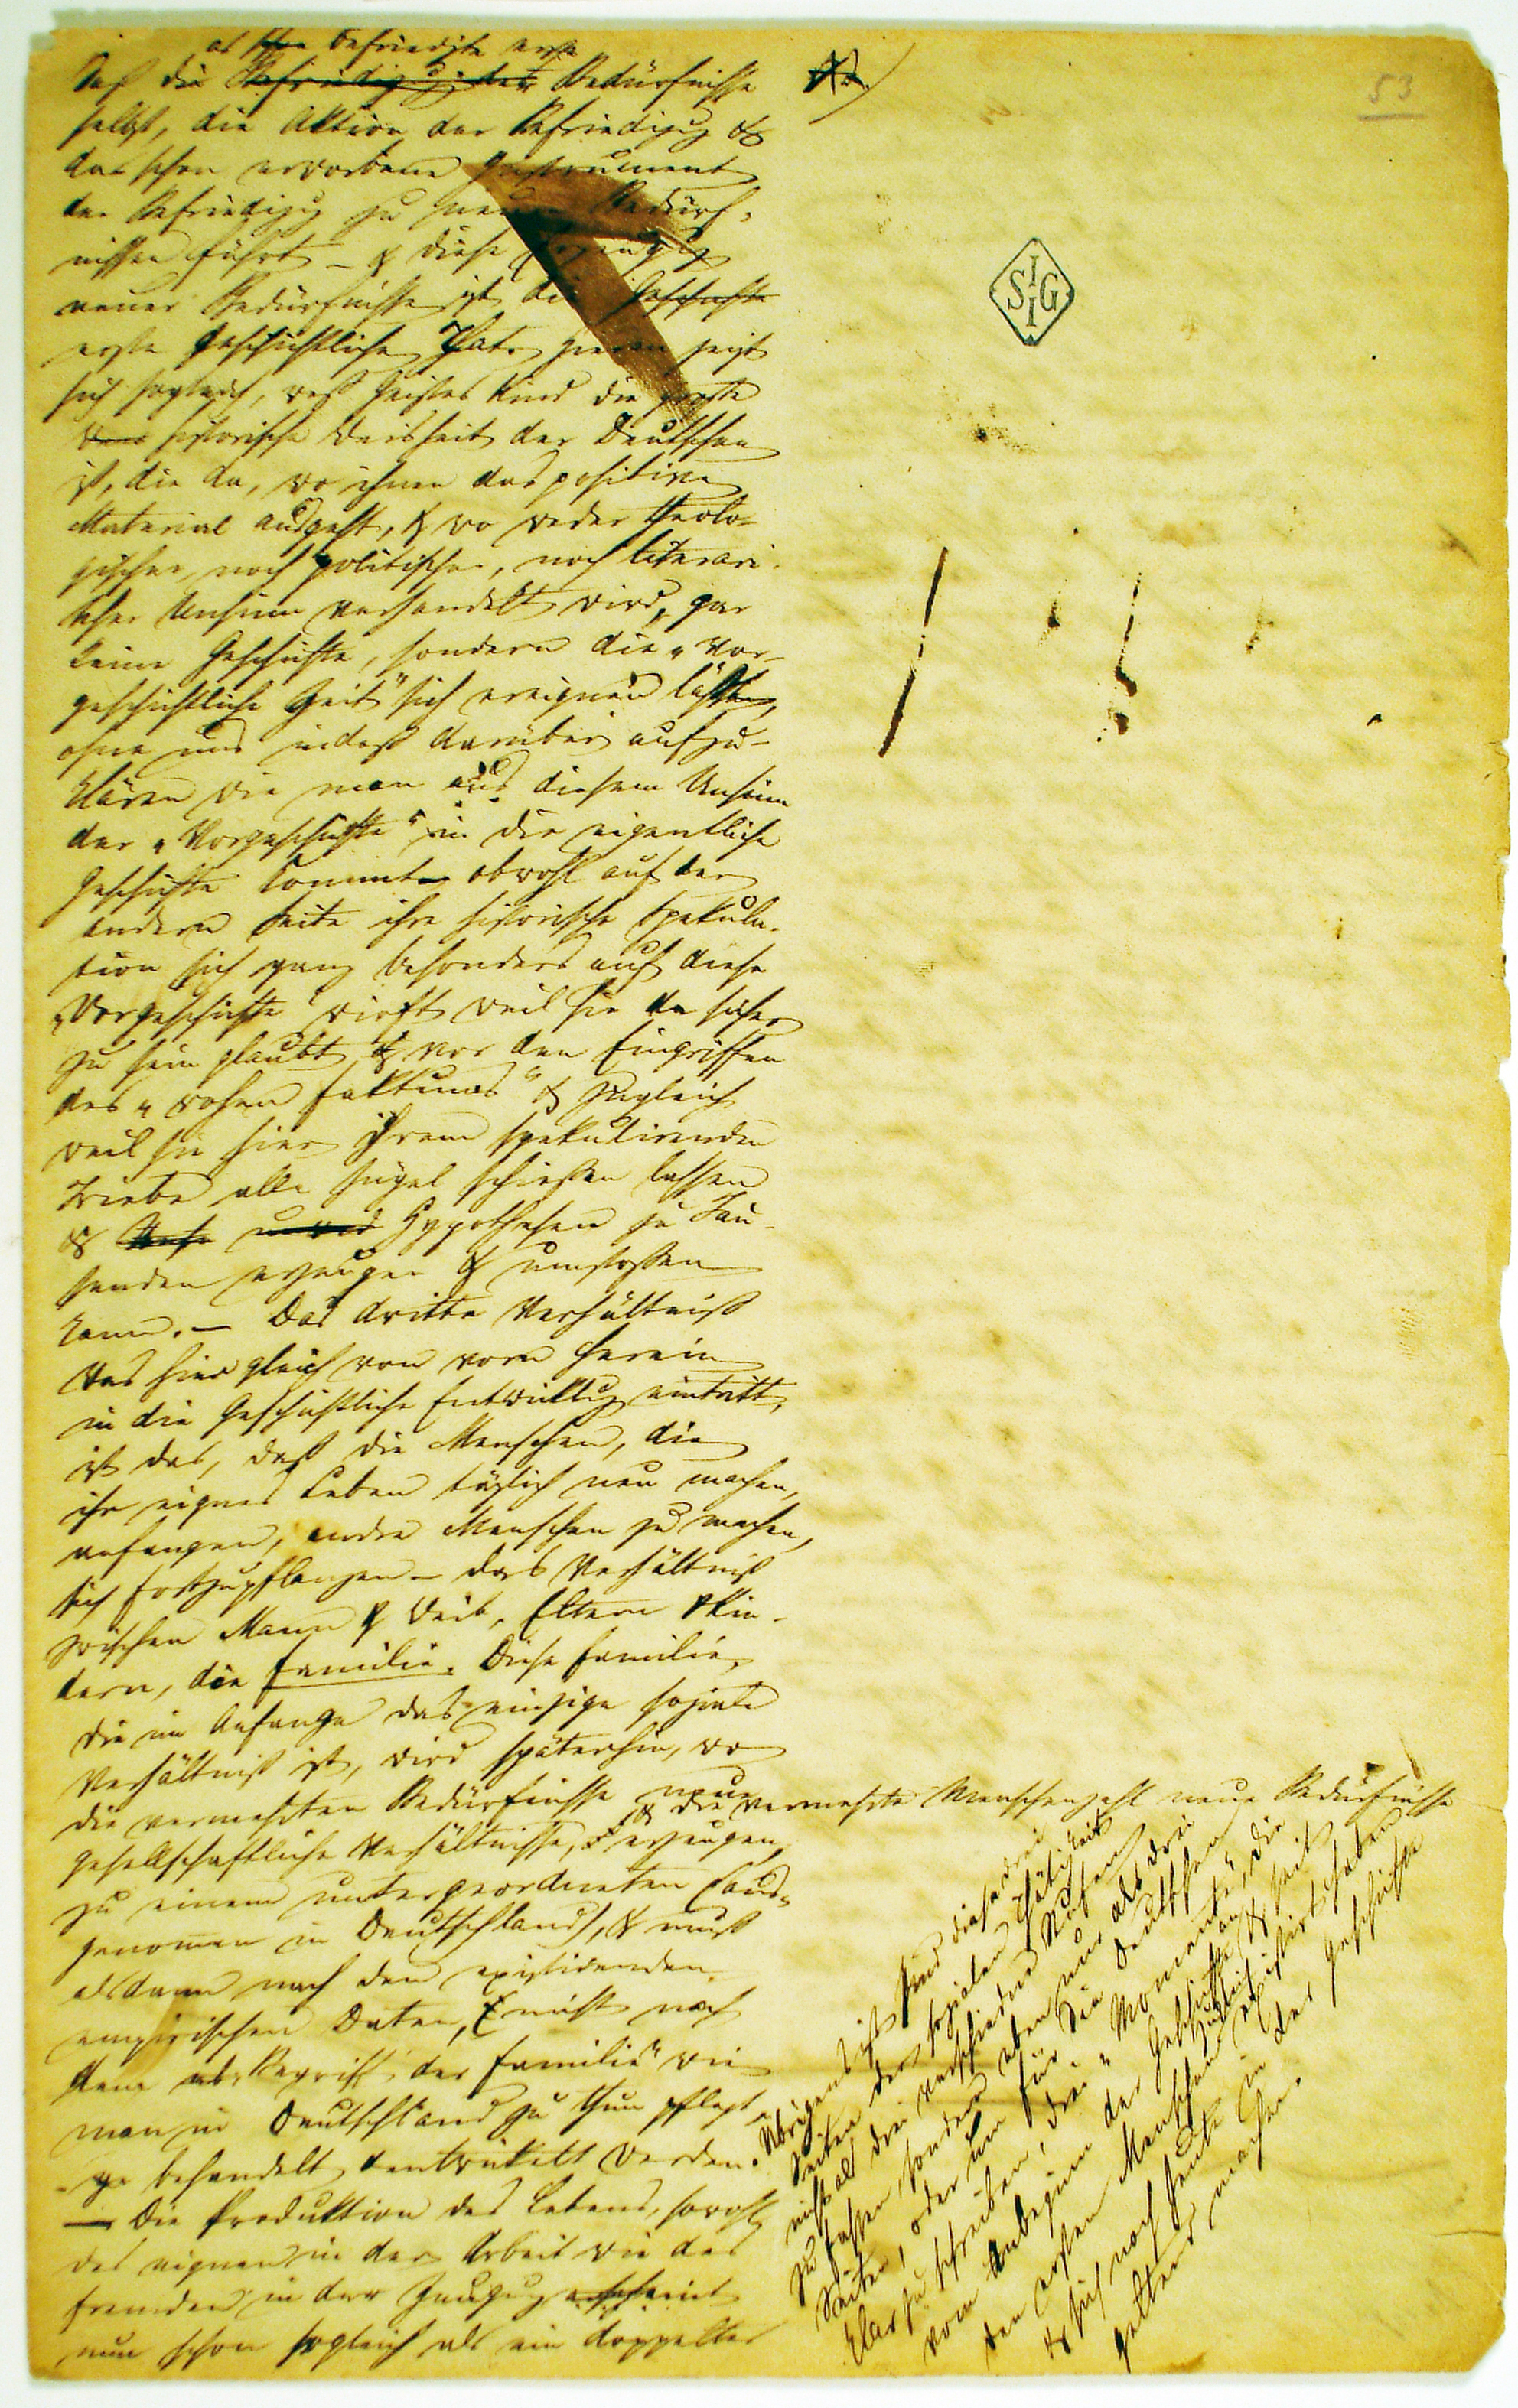 53
das befriedigte erste
daß die Befriedigung des Bedürfnisse
selbst, die Aktion der Befriedigung &
das schon erworbene Instrument
der Befriedigung zu neuen Bedürf-
nissen führt – & diese Erzeugung
neuer Bedürfnisse ist die Geschichte
erste geschichtliche That. Hieran zeigt
sich sogleich, weß Geistes Kind die große
historische Weisheit der Deutschen
ist, die da, wo ihnen das positive
Material ausgeht, & wo weder theolo-
gischer, noch politischer, noch literari-
scher Unsinn verhandelt wird, gar
keine Geschichte, sondern die „vor-
geschichtliche Zeit" sich ereignen läßt,
ohne uns indeß darüber aufzu-
klären wie man aus diesem Unsinn
der „Vorgeschichte" in die eigentliche
Geschichte kommt – obwohl auf der
andern Seite ihre historische Spekula-
tion sich ganz besonders auf diese
„Vorgeschichte" wirft weil sie da sicher
zu sein glaubt vor den Eingriffen
des „rohen Faktums" & zugleich
weil sie hier ihrem spekulirenden
Triebe alle Zügel schießen lassen
& Hypothesen zu Tau-
senden erzeugen & umstoßen
kann. – Das dritte Verhältniß
was hier gleich von vorn herein
in die geschichtliche Entwicklung eintritt,
ist das, daß die Menschen, die
ihr eignes Leben täglich neu machen,
anfangen, andre Menschen zu machen,
sich fortzupflanzen – das Verhältniß
zwischen Mann & Weib, Eltern & Kin-
dern, die Familie. Diese Familie,
die im Anfange das einzige soziale
Verhältniß ist, wird späterhin, wo
die vermehrten Bedürfnisse neue
gesellschaftliche Verhältnisse, & die vermehrte Menschenzahl neue Bedürfnisse
erzeugen,
zu einem untergeordneten (aus-
genommen in Deutschland), & muß
alsdann nach den existirenden
empirischen Daten, nicht nach
dem „Begriff der Familie" wie
man in Deutschland zu thun pflegt,
behandelt & entwickelt werden.
– Die Produktion des Lebens, sowohl
des eignen in der Arbeit wie des
fremden in der Zeugung erscheint
nun schon sogleich als ein doppeltes
Übrigens sind diese drei
Seiten der sozialen Thätigkeit
nicht als drei verschiedne Stufen
zu fassen sondern eben nur als drei
Seiten, oder um für die Deutschen
klar zu schreiben, drei „Momente", die
vom Anbeginn der Geschichte an & seit
den ersten Menschen zugleich existirt haben
& sich noch heute in der Geschichte
geltend machen.
SIIG